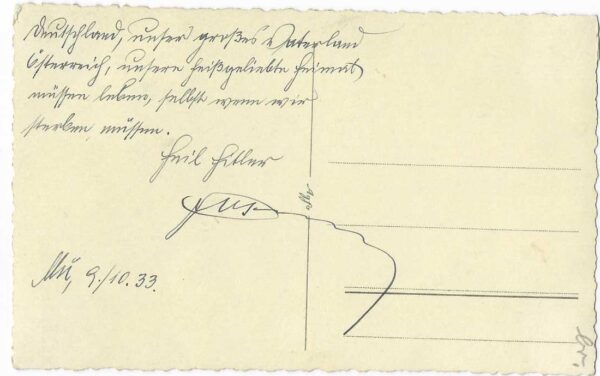 Deutschland, unser großes Vaterland
Österreich, unsere heißgeliebte Heimat
müssen leben, selbst wenn wir
sterben müssen.
Heil Hitler
Mü, 9./10.33.